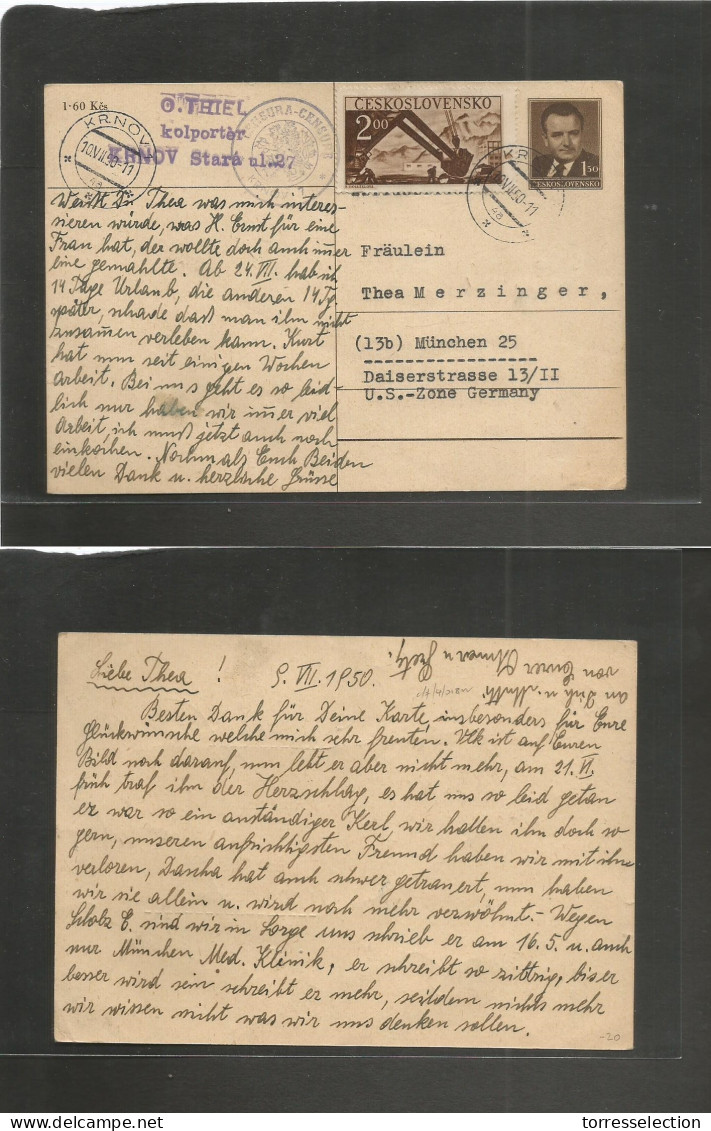 1·60 Kčs
O. THIEL
kolportér
KRNOV Stará ul. 27
KRNOV
10.VII.50-11
4a
CENSURA-CENSURE
ČESKOSLOVENSKO
2.00
ČESKOSLOVENSKO
1.50
10.VII.50-11
4a
Weißt Du Thea was mich interes-
sieren würde, was H. Ernst für eine
Frau hat, der wollte doch auch im̅er
eine gemahlte. Ab 24. VII. hab ich
14 Tage Urlaub, die anderen 14 Tg.
später, schade daß man ihn nicht
zusam̅en verleben kann. Kurt
hat nun seit einigen Wochen
Arbeit. Bei uns geht es so leid-
lich nur haben wir im̅er viel
Arbeit, ich muß jetzt auch noch
einkochen. Nochmals Euch Beiden
vielen Dank u. herzliche Grüsse
Fräulein
Thea Merzinger,
(13b) München 25
Daiserstrasse 13/II
U.S.-Zone Germany
an Dich u. Mutti
von Eurer
Liebe Thea ! 9. VII. 1950.
Besten Dank für Deine Karte, insbesonders für Eure
Glückwünsche welche mich sehr freuten. Vlk ist auf Euren
Bild noch darauf, nun lebt er aber nicht mehr, am 21. VI.
früh traf ihn der Herzschlag, es hat uns so leid getan
er war so ein anständiger Kerl, wir hatten ihn doch so
gern, unseren aufrichtigsten Freund haben wir mit ihm
verloren, Dascha hat auch schwer getrauert, nun haben
wir sie allein u. wird noch mehr verwöhnt.- Wegen
Scholz E. sind wir in Sorge uns schrieb er am 16.5. u. auch
nur München Med. Klinik, er schreibt so zittrig, bis er
besser wird sein schreibt er mehr, seitdem nichts mehr
wir wissen nicht was wir uns denken sollen.
-20
torresselection